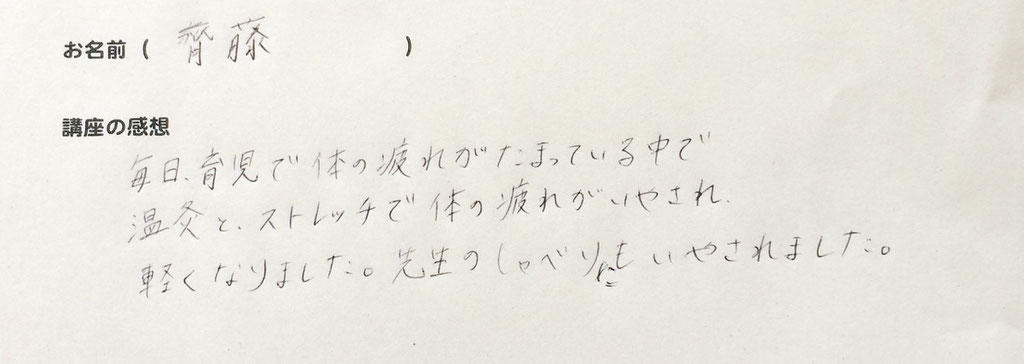 お名前（ 齊藤 ）
講座の感想
毎日、育児で体の疲れがたまっている中で
温灸と、ストレッチで体の疲れがいやされ、
軽くなりました。先生のしゃべりにもいやされました。